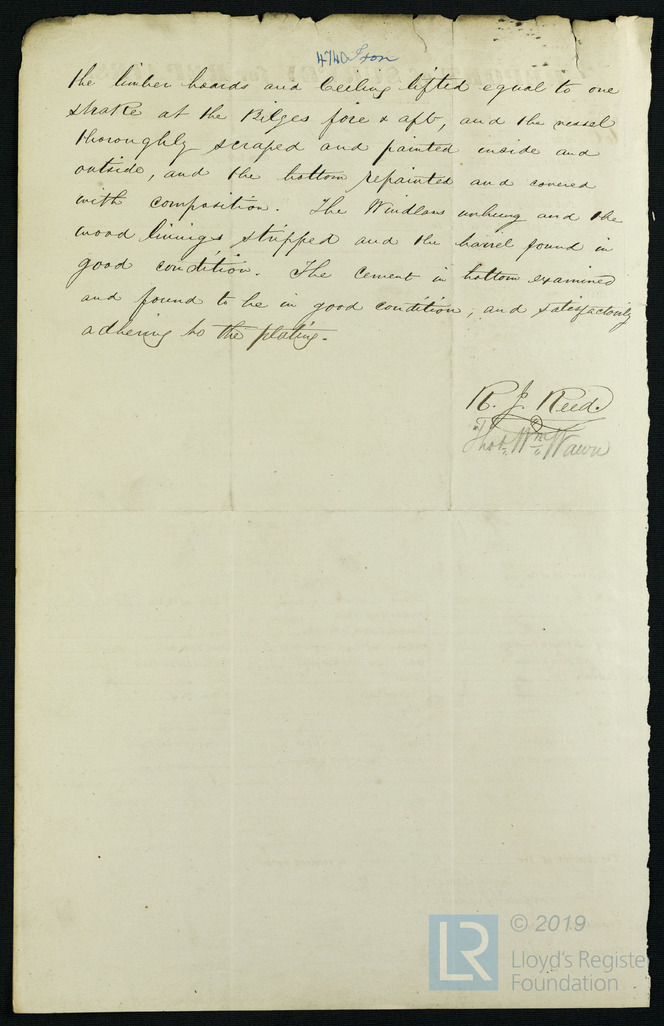 4740 Iron
the limber boards and Ceiling lifted equal to one
strake at the Bilges fore & aft, and the vessel
thoroughly scraped and painted inside and
outside, and the bottom repainted and covered
with composition. The Windlass unhung and the
wood linings stripped and the barrel found in
good condition. The cement in bottom examined
and found to be in good condition, and satisfactorily
adhering to the plating.
R. J. Reed.
Thos. Wm Wawn
LR
© 2019
Lloyd's Register
Foundation